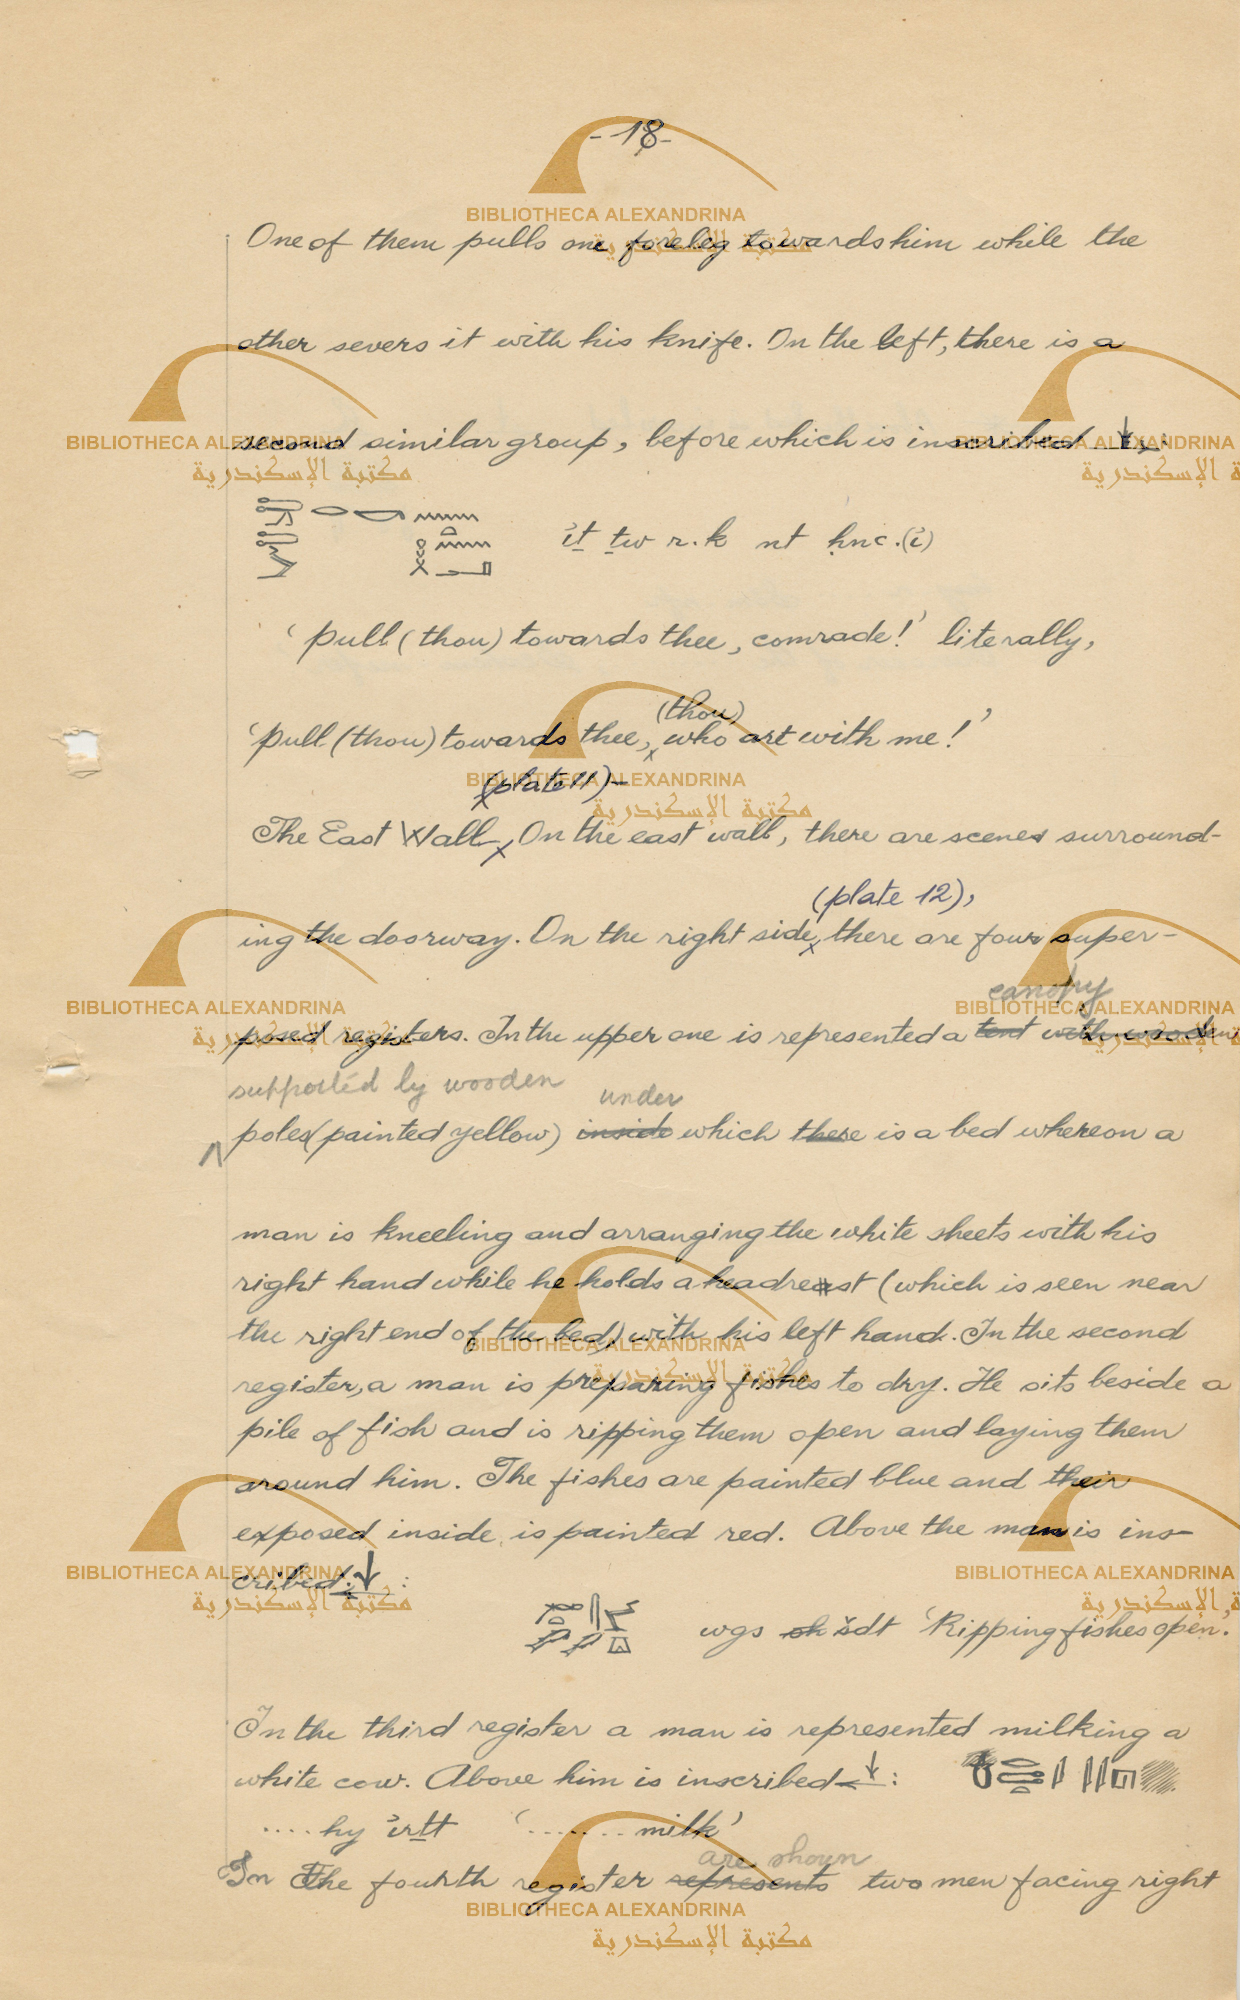 -18-
One of them pulls one foreleg towards him while the
other severs it with his knife. On the left, there is a
second similar group, before which is inscribed ↓←:
ỉṯ ṯw r.k nt ḥnc.(ỉ)
'Pull (thou) towards thee, comrade!' literally,
(thou)
'Pull (thou) towards thee, who art with me!'
(plate 11)-
The East Wall On the east wall, there are scenes surround-
(plate 12),
ing the doorway. On the right side, there are four super-
canopy
posed registers. In the upper one is represented a tent with wooden
supported by wooden
under
poles (painted yellow) inside which there is a bed whereon a
man is kneeling and arranging the white sheets with his
right hand while he holds a headrest (which is seen near
the right end of the bed) with his left hand. In the second
register, a man is preparing fishes to dry. He sits beside a
pile of fish and is ripping them open and laying them
around him. The fishes are painted blue and their
exposed inside is painted red. Above the man is ins-
cribed ↓←:
wgs sh šdt 'Ripping fishes open.'
In the third register a man is represented milking a
white cow. Above him is inscribed ←↓:
....hy ỉrṯt '....... milk'
are shown
In The fourth register represents two men facing right
BIBLIOTHECA ALEXANDRINA
مكتبة الإسكندرية